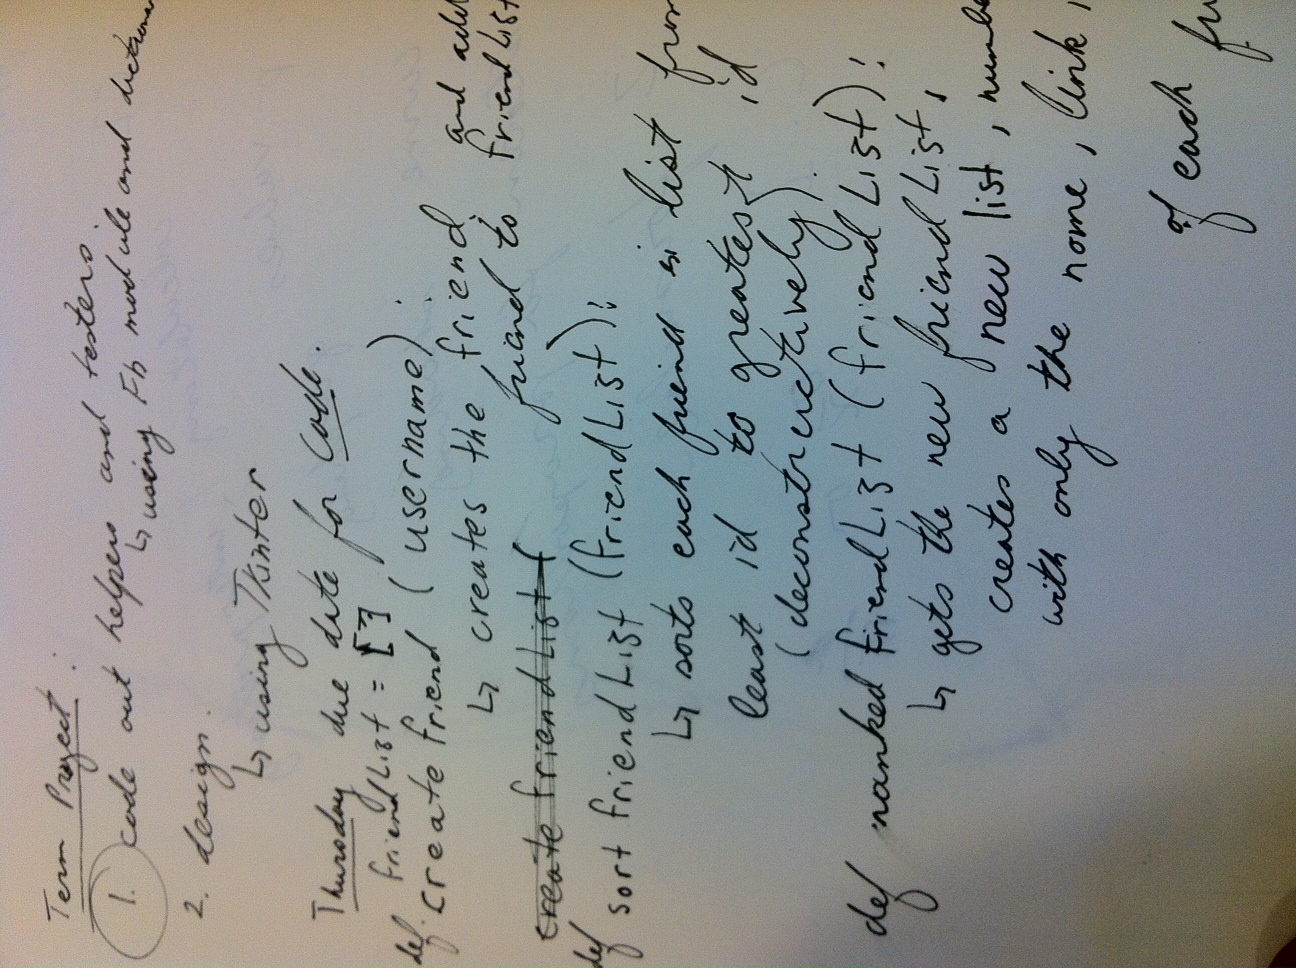 Term Project:
1. code out helpers and testers.
↳ using Fb module and dictionar
2. design.
↳ using Tkinter
Thursday due date for code.
friendList = []
def createfriend (username):
↳ creates the friend and add
friend to friendList
create friendList (
def sort friendList (friendList):
↳ sorts each friend in list from
least id to greatest id
(deconstructively).
def ranked friendList (friendList):
↳ gets the new friendList,
creates a new list, numbe
with only the name, link,
of each fri